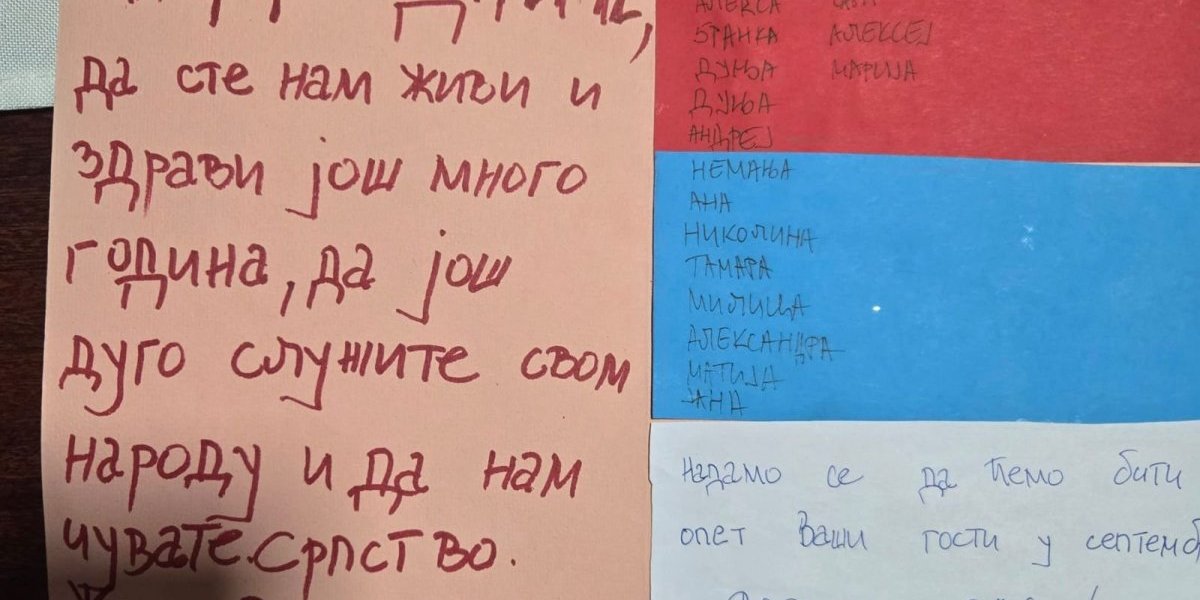 да сте нам живи и
здрави још много
година, да још
дуго служите свом
народу и да нам
чувате Српство.
АЛЕКСА
СТАНКА АЛЕКСЕЈ
ДУЊА МАРИЈА
ДУЊА
АНДРЕЈ
НЕМАЊА
АНА
НИКОЛИНА
ТАМАРА
МИЛИЦА
АЛЕКСАНДРА
МАТИЈА
ЈАНА
Надамо се да ћемо бити
опет Ваши гости у септемб